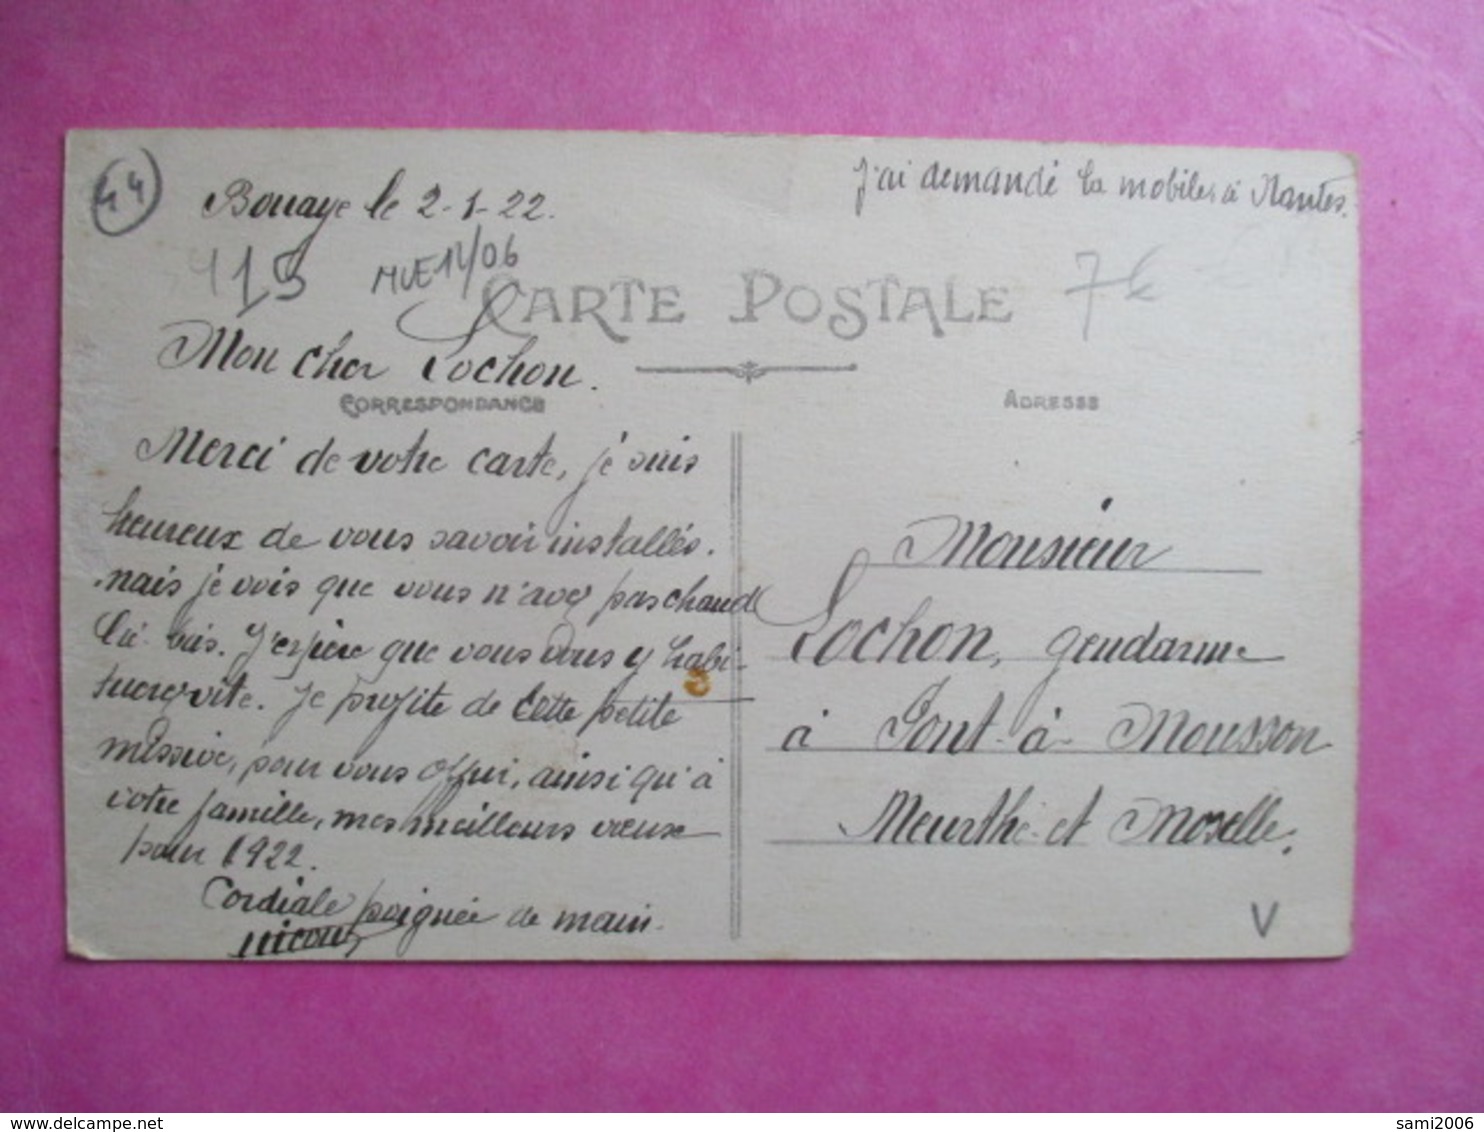 44
Bouaye le 2-1-22.
J'ai demandé la mobile, à Nantes.
7€
CARTE POSTALE
Mon cher Lochon.
CORRESPONDANCE
ADRESSE
Merci de votre carte, je suis
heureux de vous savoir installés.
mais je vois que vous n'avez pas chaud
là-bas. J'espère que vous vous y habi-
tuerez vite. Je profite de cette petite
missive, pour vous offrir, ainsi qu'à
votre famille, mes meilleurs vœux
pour 1922.
Cordiale poignée de main.
Monsieur
Lochon, gendarme
à Pont-à-Mousson
Meurthe-et Moselle.
V
sami2006